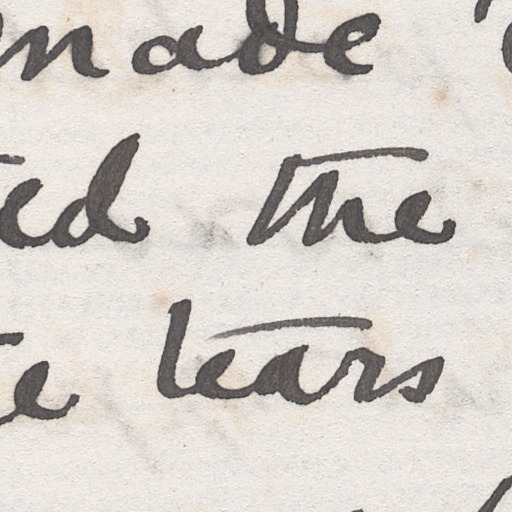 made
ted the
te tears